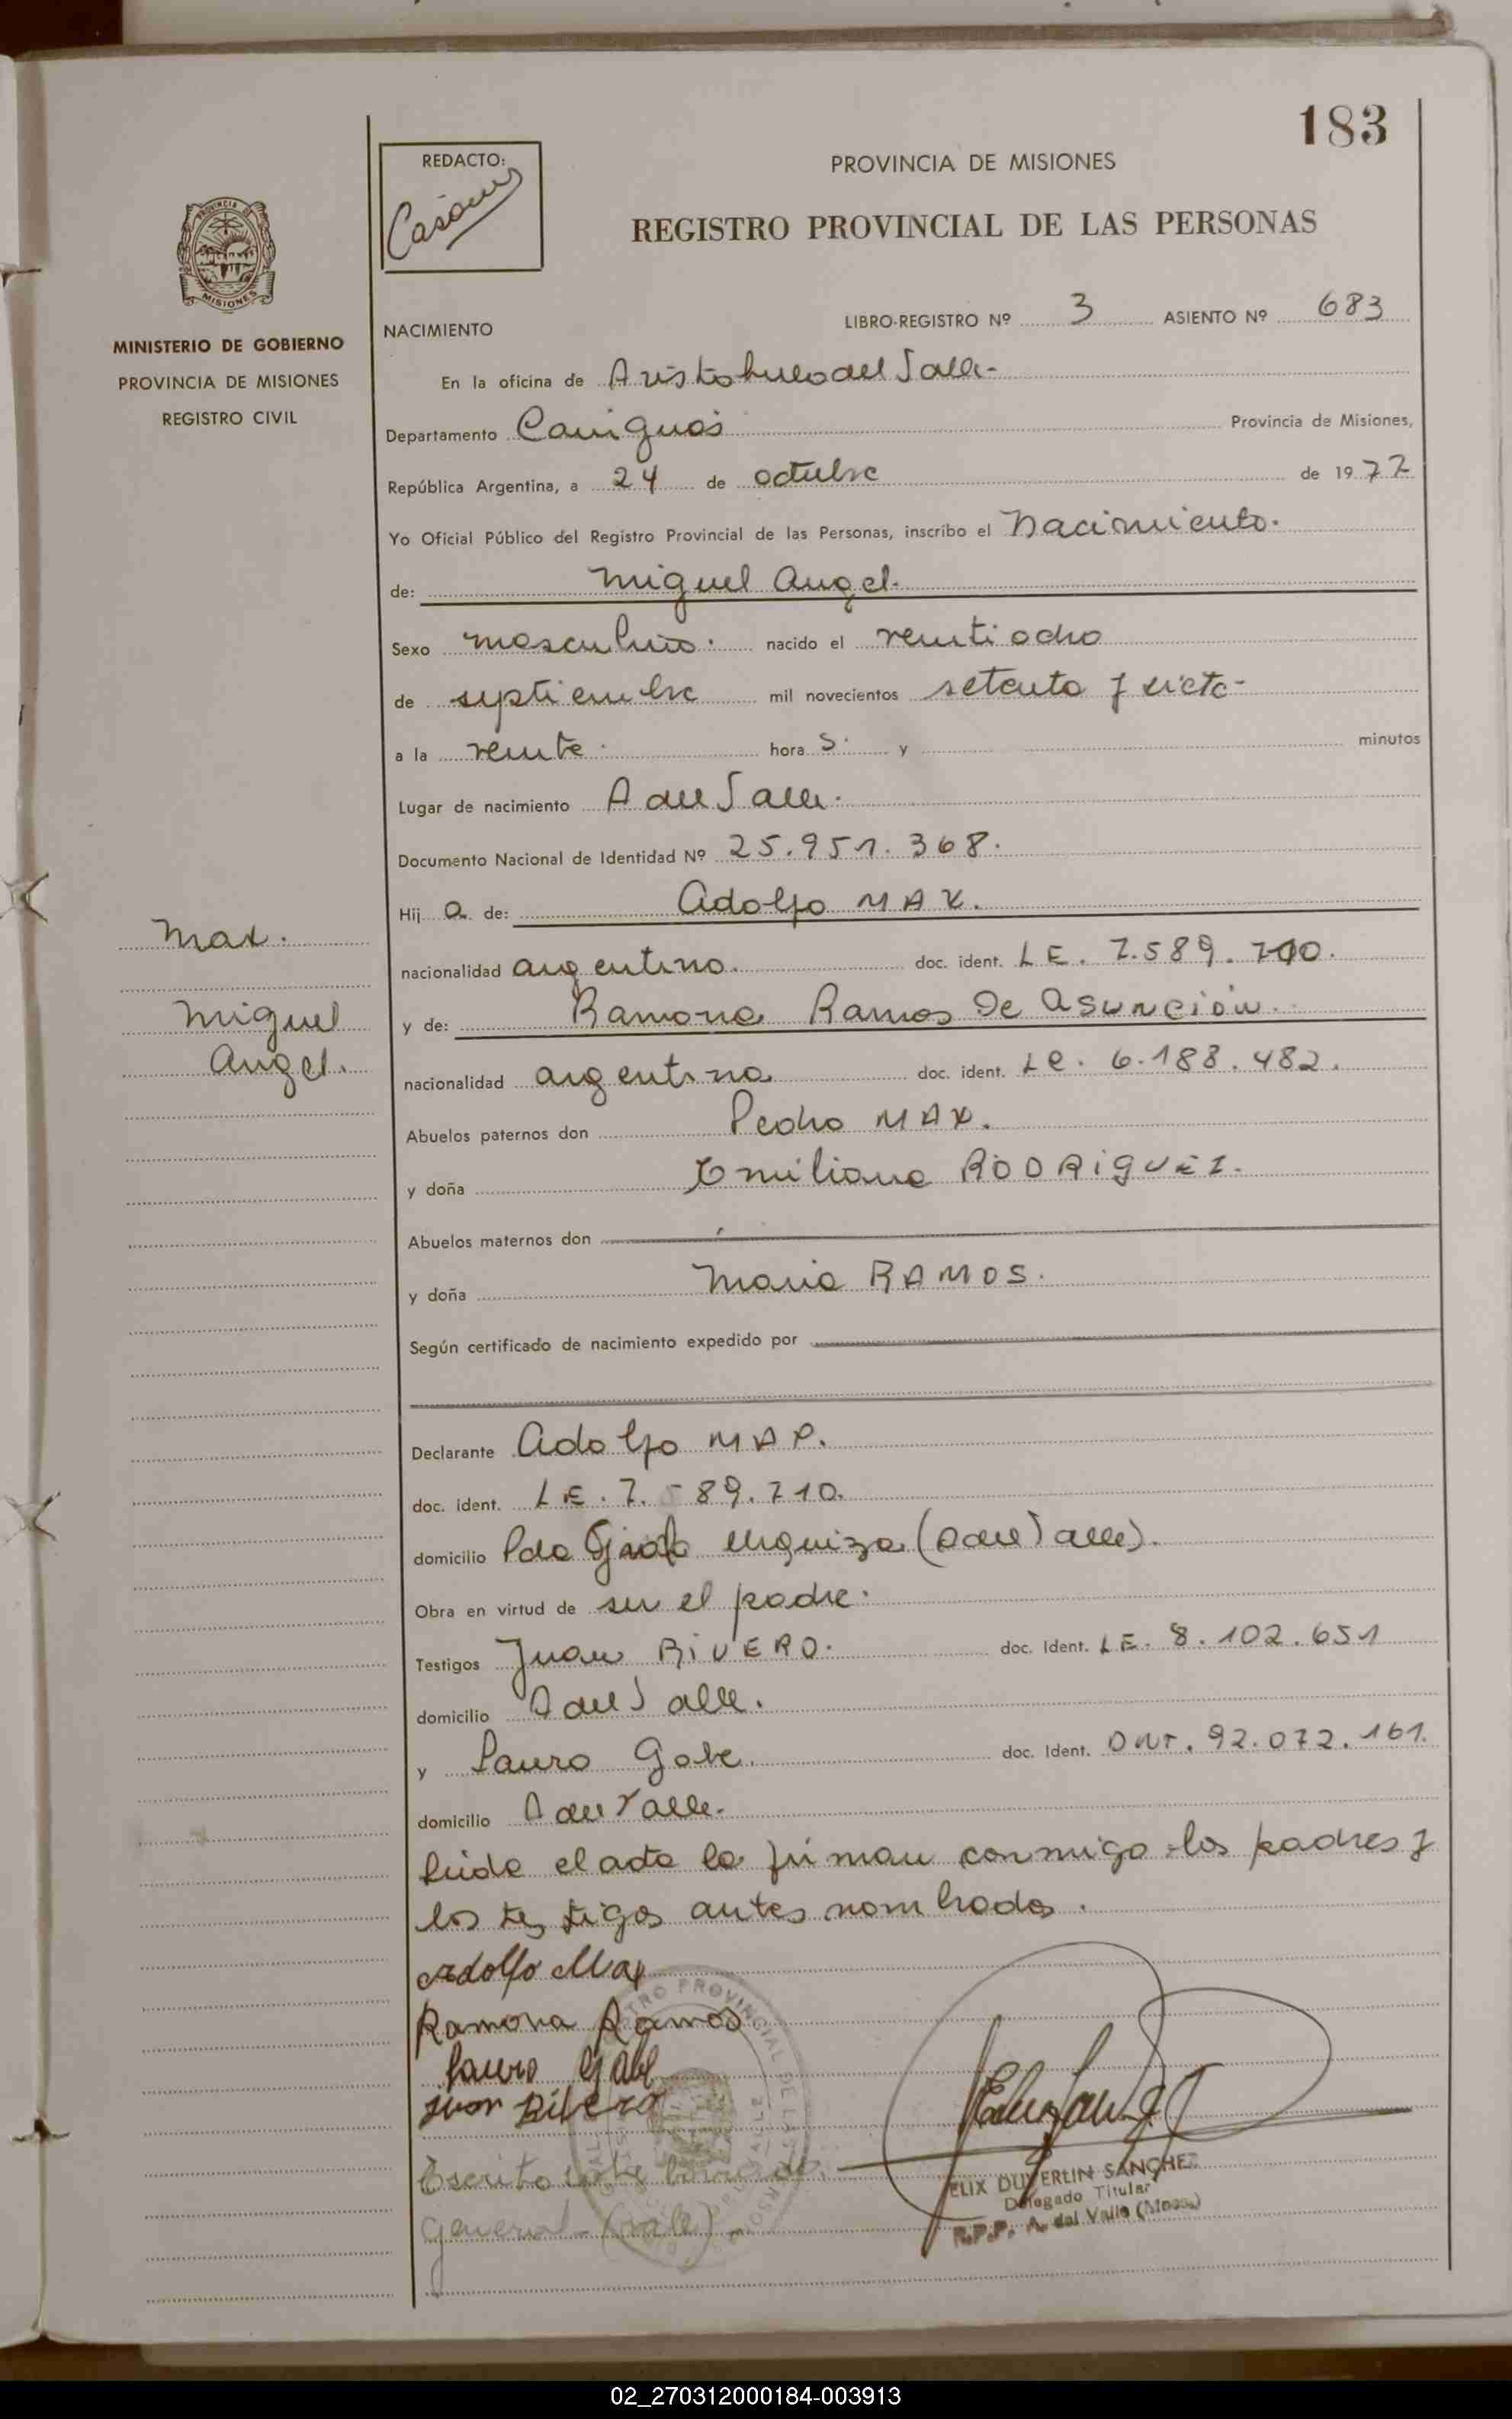 183
REDACTO:
PROVINCIA DE MISIONES
REGISTRO PROVINCIAL DE LAS PERSONAS
PROVINCIA DE
MISIONES
MINISTERIO DE GOBIERNO
PROVINCIA DE MISIONES
REGISTRO CIVIL
NACIMIENTO
LIBRO-REGISTRO Nº 3 ASIENTO Nº 683
En la oficina de Aristobulo del Valle-
Departamento Cainguás Provincia de Misiones,
República Argentina, a 24 de octubre de 19 77
Yo Oficial Público del Registro Provincial de las Personas, inscribo el Nacimiento.
de: Miguel Angel.
Sexo masculino. nacido el veintiocho
de septiembre mil novecientos setenta y siete-
a la veinte. hora s. y minutos
Lugar de nacimiento A del Valle.
Documento Nacional de Identidad Nº 25.951.368.
Hij o de: Adolfo MAX.
Max.
nacionalidad argentino. doc. ident. LE. 7.589.710.
Miguel
Angel.
y de: Ramona Ramos De Asunción.
nacionalidad argentina doc. ident. LC. 6.188.482.
Abuelos paternos don Pedro MAX.
y doña Emiliana RODRIGUEZ.
Abuelos maternos don
y doña Maria RAMOS.
Según certificado de nacimiento expedido por
Declarante Adolfo MAX.
doc. ident. LE. 7.589.710.
domicilio Pdo Gral Urquiza (A del Valle).
Obra en virtud de ser el padre.
Testigos Juan RIVERO. doc. Ident. LE. 8.102.651
domicilio A del Valle.
y Lauro Gabe. doc. Ident. DNI. 92.072.161.
domicilio A del Valle.
leida el acta la firman conmigo los padres y
los testigos antes nombrados.
Adolfo Max
Ramona Ramos
Lauro Gabe
Juan Ribero
Escrito sobre borrado.
General- (vale)
FELIX DUVERLIN SANCHEZ
Delegado Titular
R.P.P. A. del Valle (Mnes.)
02_270312000184-003913